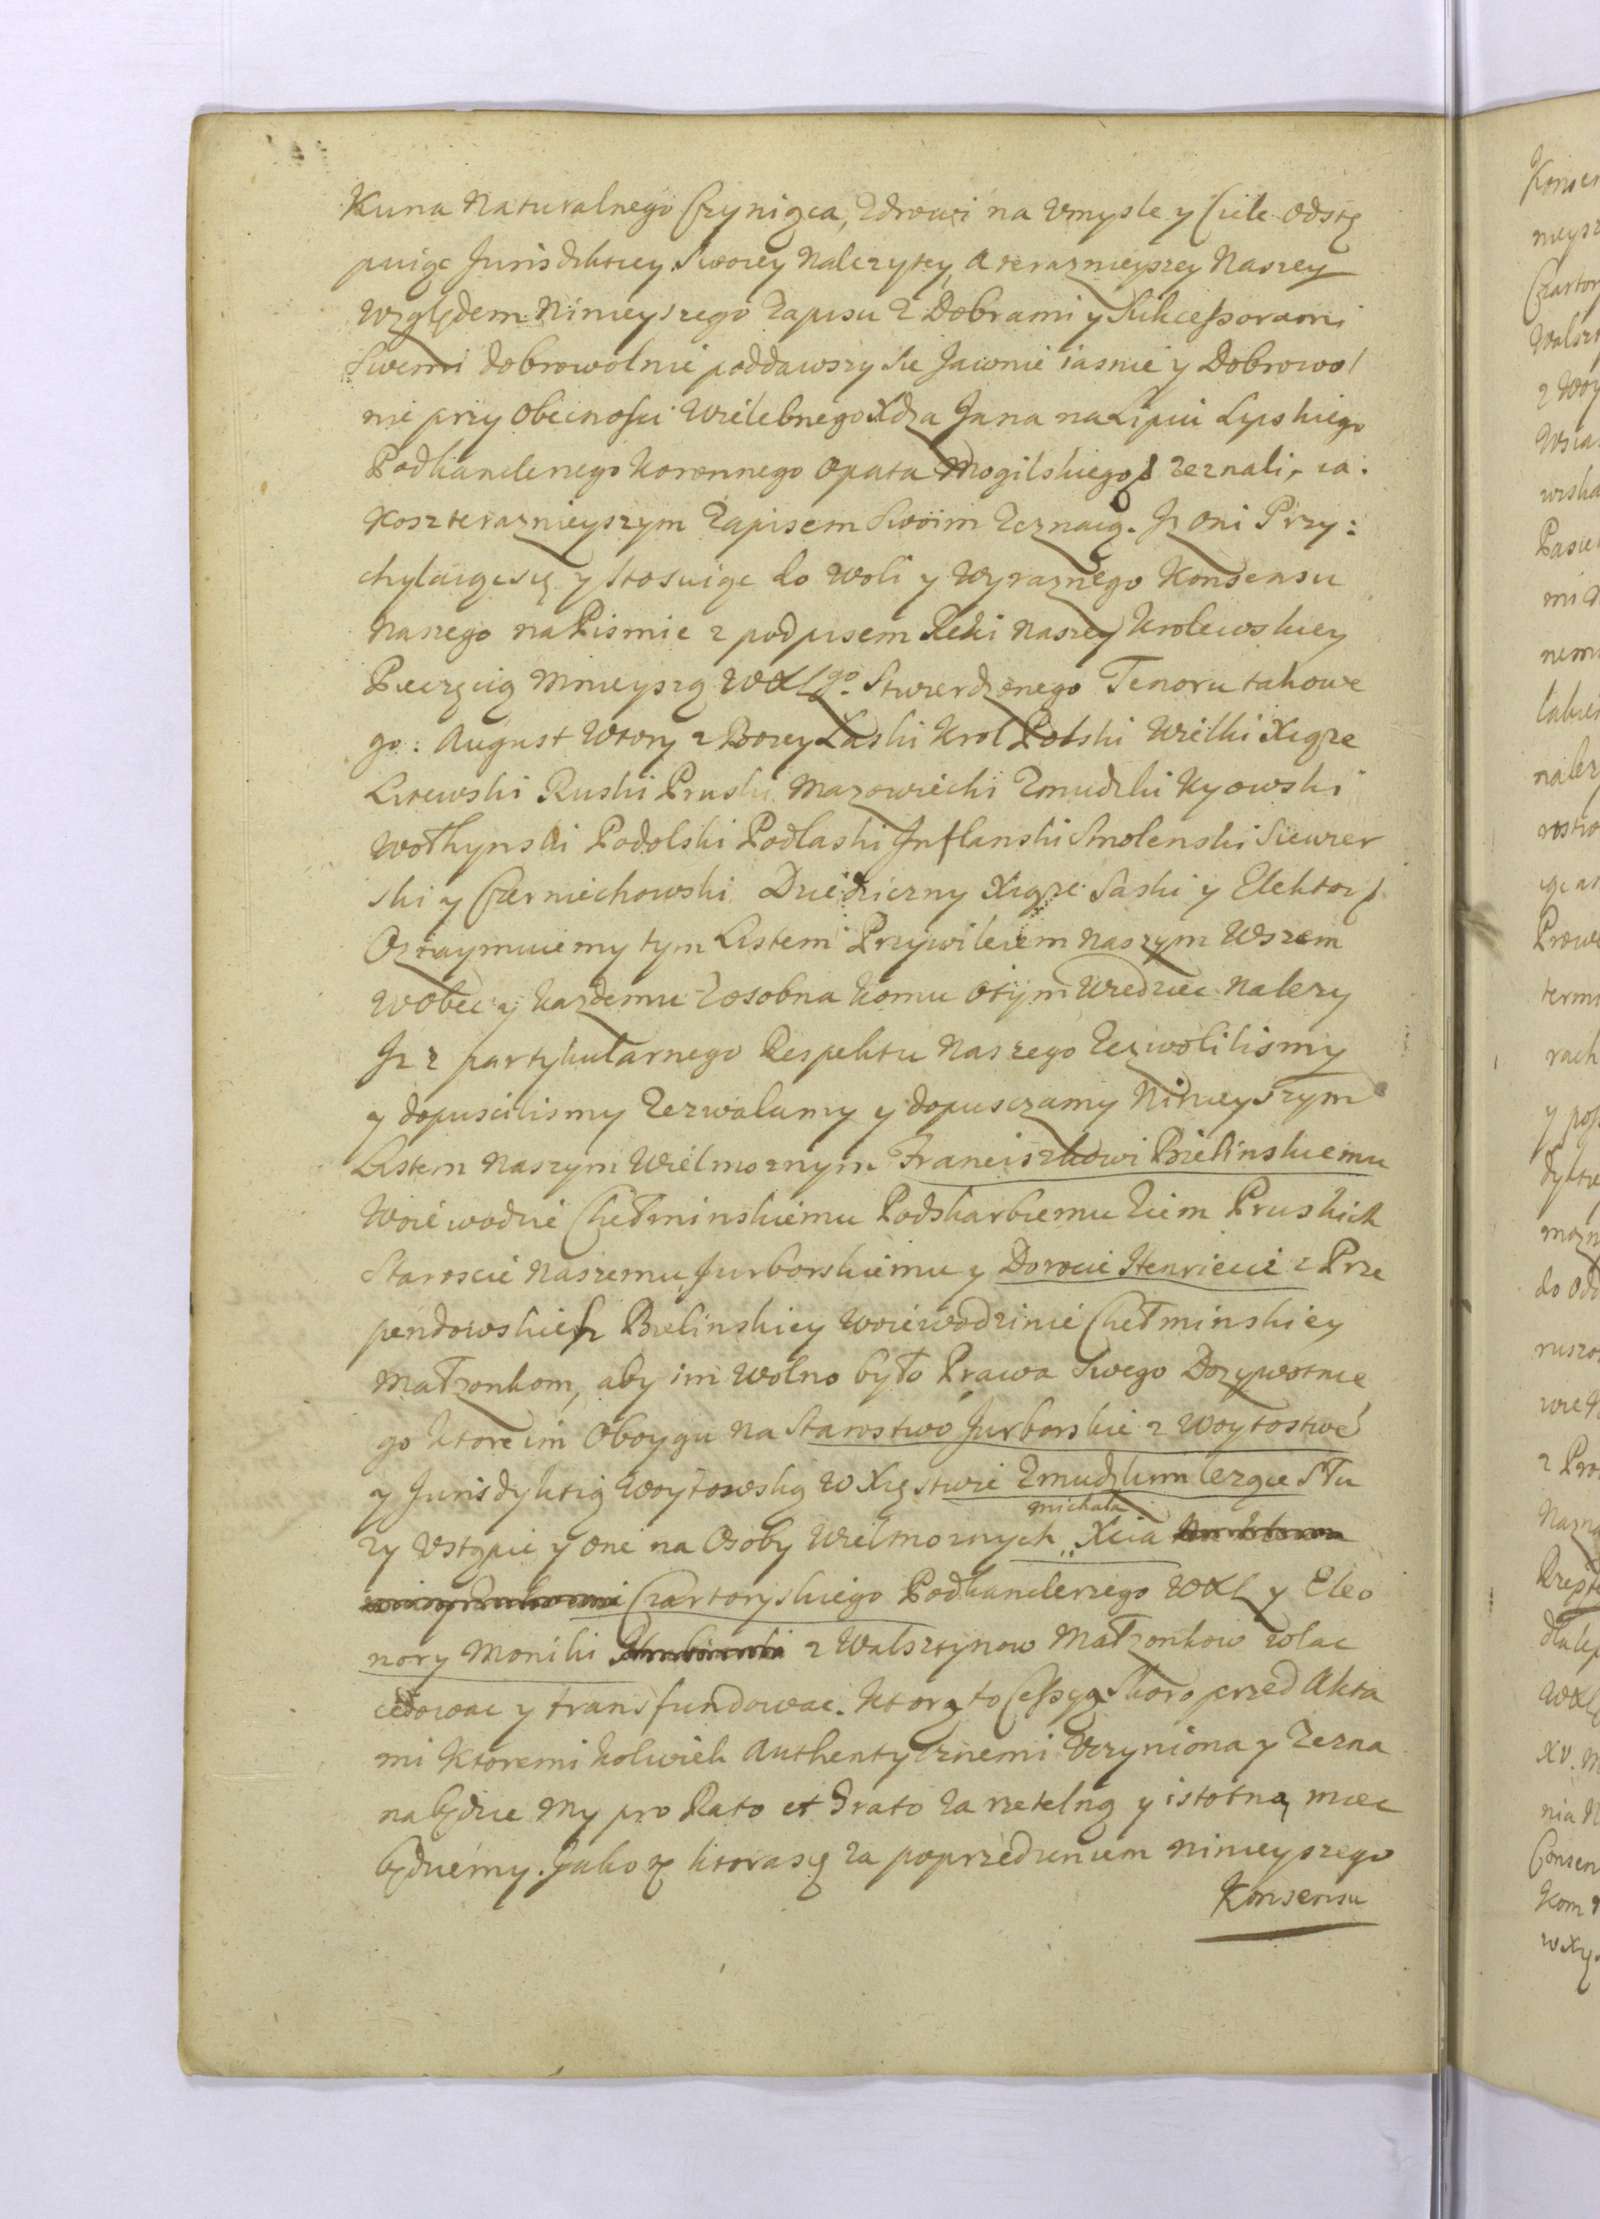 Kuna Naturalnego Czyniąca, Zdrowi na Umysle y Ciele odstę
puiąc Jurisdiktiey Swoiey Nalezytey, a terazniejszey Naszey
Względem Ninieyszego Zapisu z Dobrami y Sukcessorami
Swemi dobrowolnie poddawszy sie Jawnie iasnie y Dobrowol
nie przy Obecnosci Wielebnego Xdza Jana na Lipiu Lipskiego
Podkanclerzego Koronnego Opata Mogilskiego zeznali, ia:
Kosz teraznieyszym Zapisem Swoim Zeznaią. Jz oni Przy:
chylaiąc się y stosuiąc do Woli y Wyraznego Konsensu
Naszego na Pismie z podpisem Reki Naszey Krolewskiey
Pieczęcią Mnieyszą WXLgo. Stwierdzonego Tenoru takowe
go: August Wtory z Bozey Laski Krol Polski Wielki Xiąze
Litewski Ruski Pruski Mazowiecki Zmudzki Kyowski
Wołhynski Podolski Podlaski Jnflanski Smolenski Siewier
ski y Czerniechowski Dziedziczny Xiąze Saski y Elektor
Oznaymuiemy tym Listem Przywileiem naszym Wszem
Wobec y kazdemu Zosobna komu otym Wiedziec Nalezy
Jz z partykularnego Respektu Naszego Zezwolilismy
y dopuscilismy Zezwalamy y dopusczamy Ninieyszym
Listem Naszym Wielmoznym Franciszkowi Bielinskiemu
Woiewodzie Chełminskiemu Podskarbiemu Ziem Pruskich
Staroscie Naszemu Jurborskiemu y Dorocie Henriecie z Prze
pendowskich Bielinskiey Woiewodzinie Chełminskiey
Małzonkom, aby im Wolno było Prawa Swego Dozywotnie
go ktore im Oboygu na Starostwo Jurborskie z Woytostwe
y Jurisdyktią Woytowską w Xięstwie Zmudzkim lezące Słu
zy Ustąpic y one na Osoby Wielmoznych Xcia
Michała
Czartoryskiego Podkanclerzego WXL y Eleo
nory Moniki z Walsztynow Małzonkow wlac
cedowac y transfundowac. Ktorą to Cessyą skoro przed Akta
mi ktoremi kolwiek Authentycznemi Uczyniona y Zezna
na będzie My pro Rato et Grato za rzetelną y istotną miec
będziemy. Jakoz ktora się za poprzedzeniem ninieyszego
Konsensu